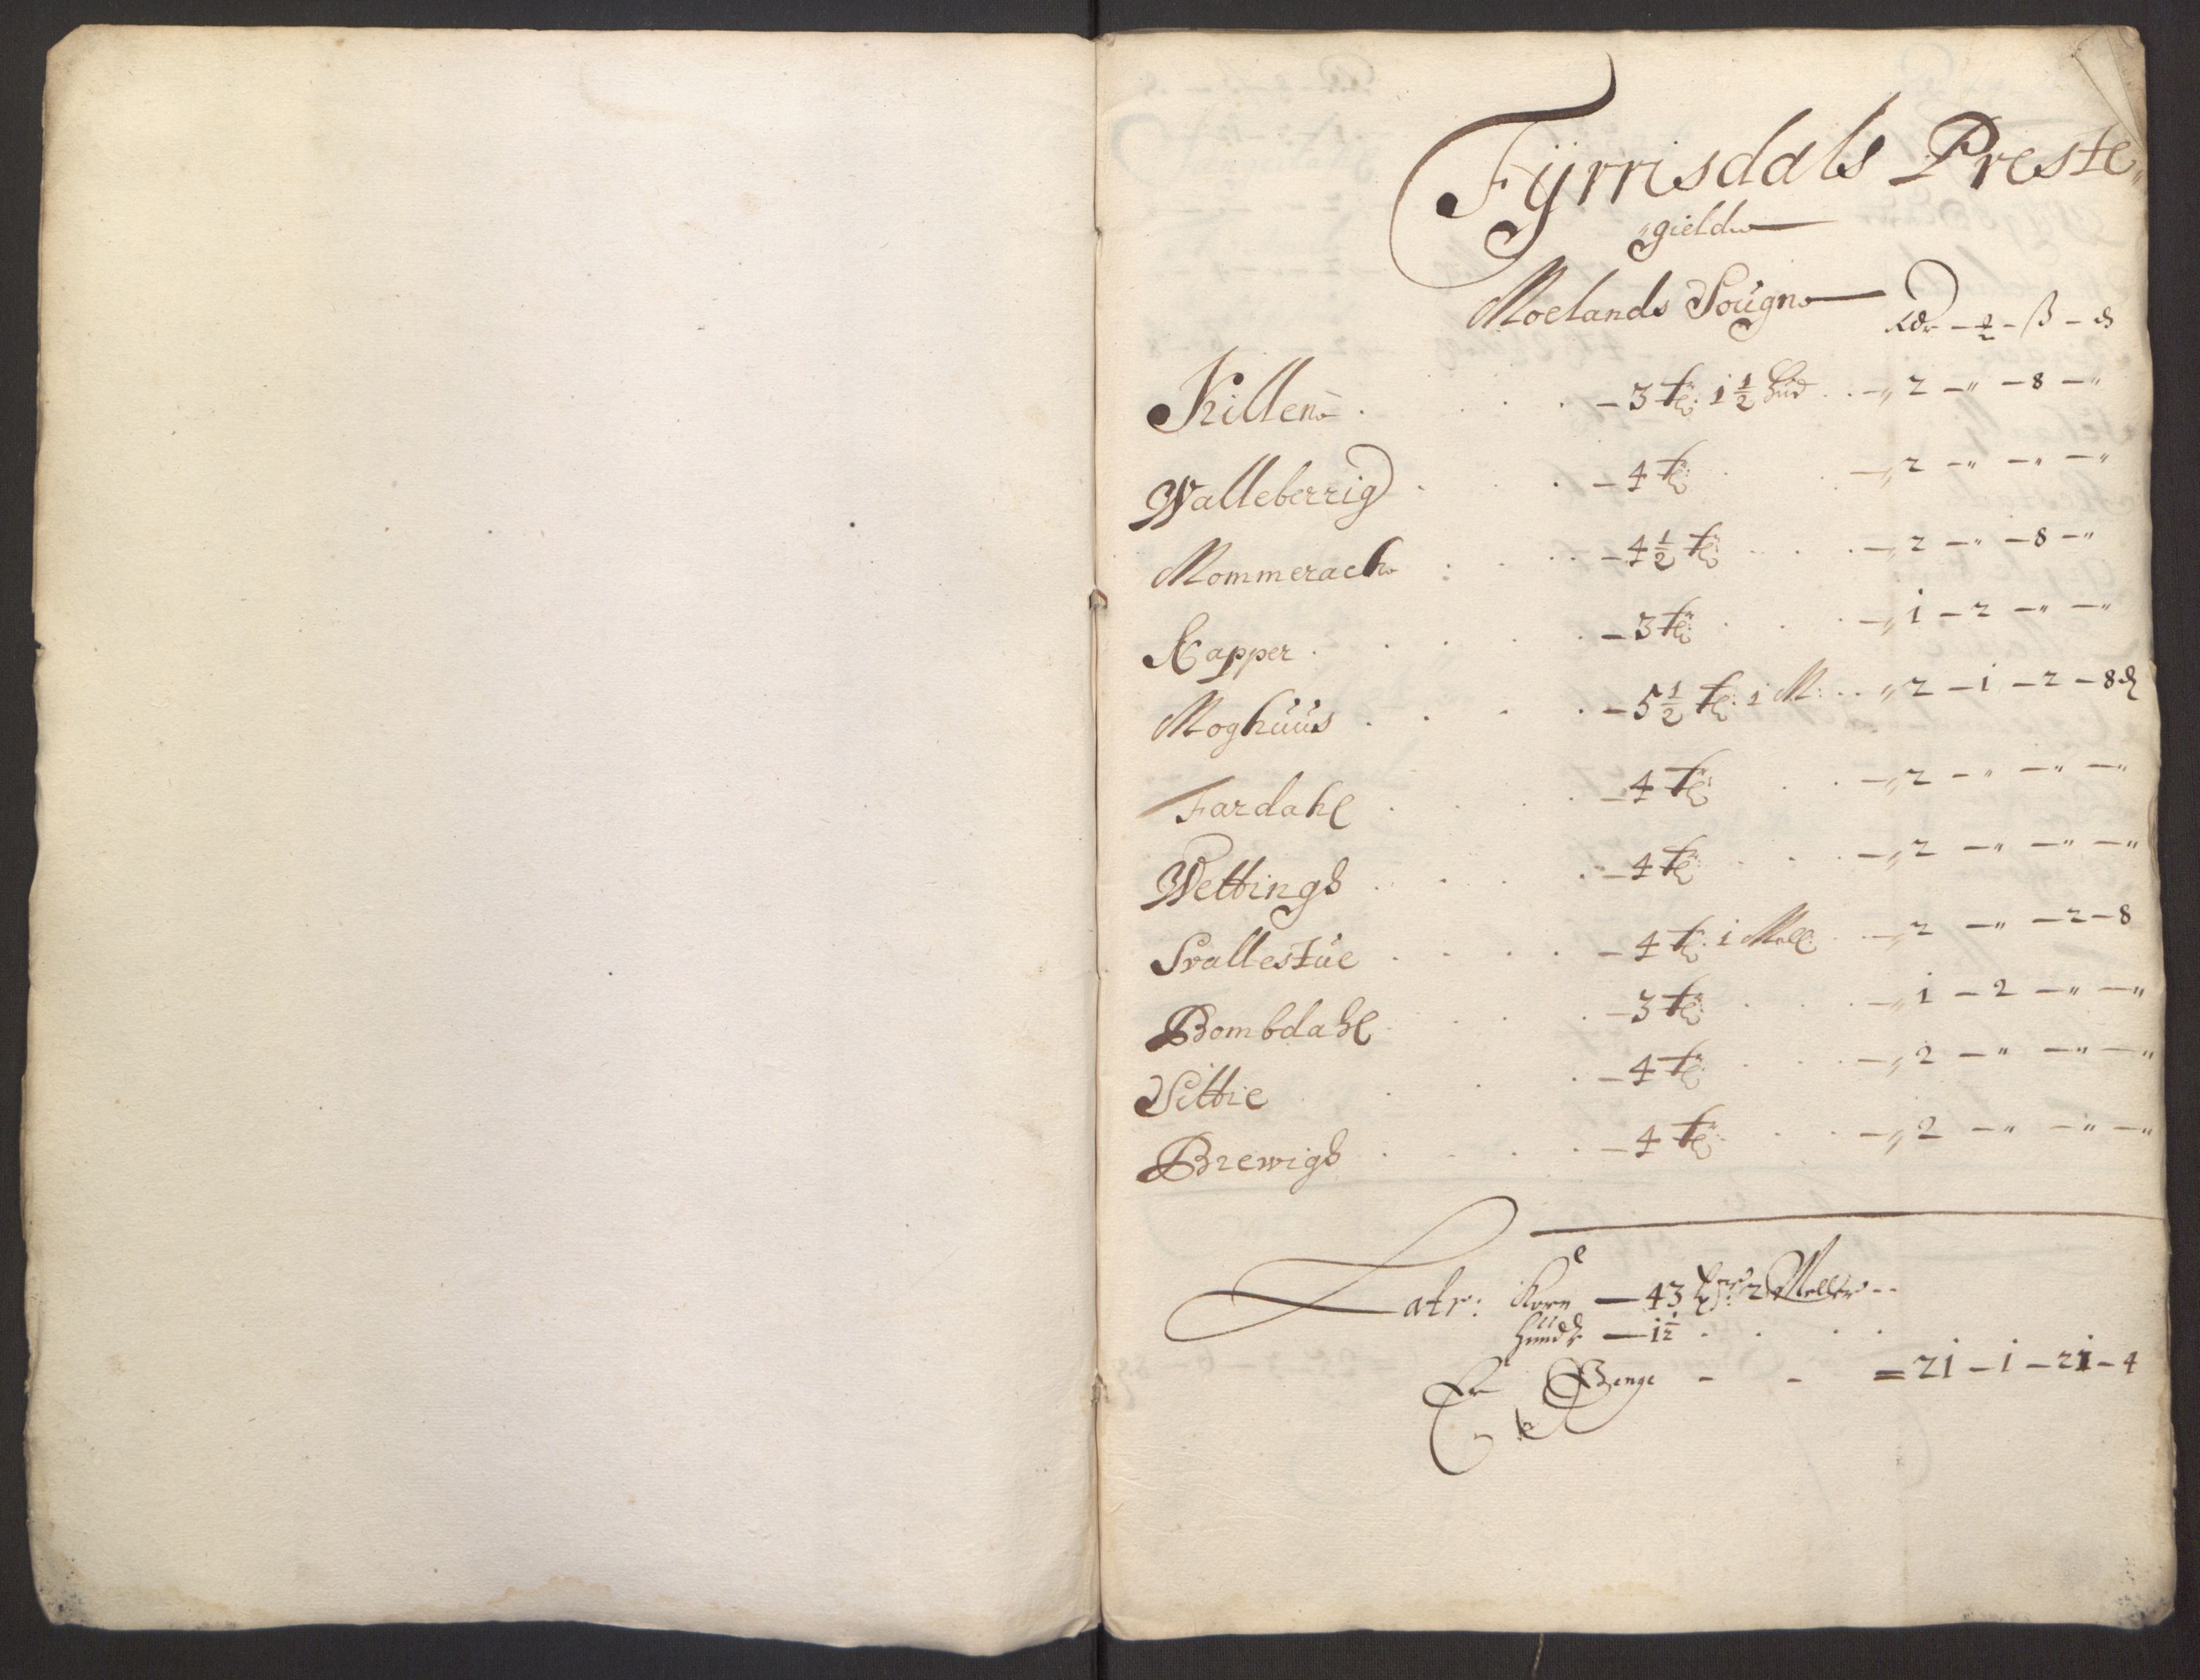 Fÿrrisdals Preste„
„gield
Moelands Sougn Rdr — ₰ — ß — ₰
Killen — 3 tr: 1 1/2 hud — „ 2 — „ — 8 — „
Walleberrig — 4 tr: — „ 2 — „ — „ — „
Mommerach — 4 1/2 tr: — „ 2 — „ — 8 — „
Kapper — 3 tr: — „ 1 — 2 — „ — „
Moghuus — 5 1/2 tr: 1 M: „ 2 — 1 — 2 — 8 ₰
Fardahl — 4 tr: — „ 2 — „ — „ — „
Wettings — 4 tr: — „ 2 — „ — „ — „
Svallestue — 4 tr: 1 Mell: — „ 2 — „ — 2 — 8
Bombdahl — 3 tr: — „ 1 — 2 — „ — „
Sittie — 4 tr: — „ 2 — „ — „ — „
Brewigs — 4 tr: — „ 2 — „ — „ — „
Latr: Korn — 43 2 Meller
Hunder — 1 1/2
Er Penge — 21 — 1 — 21 — 4